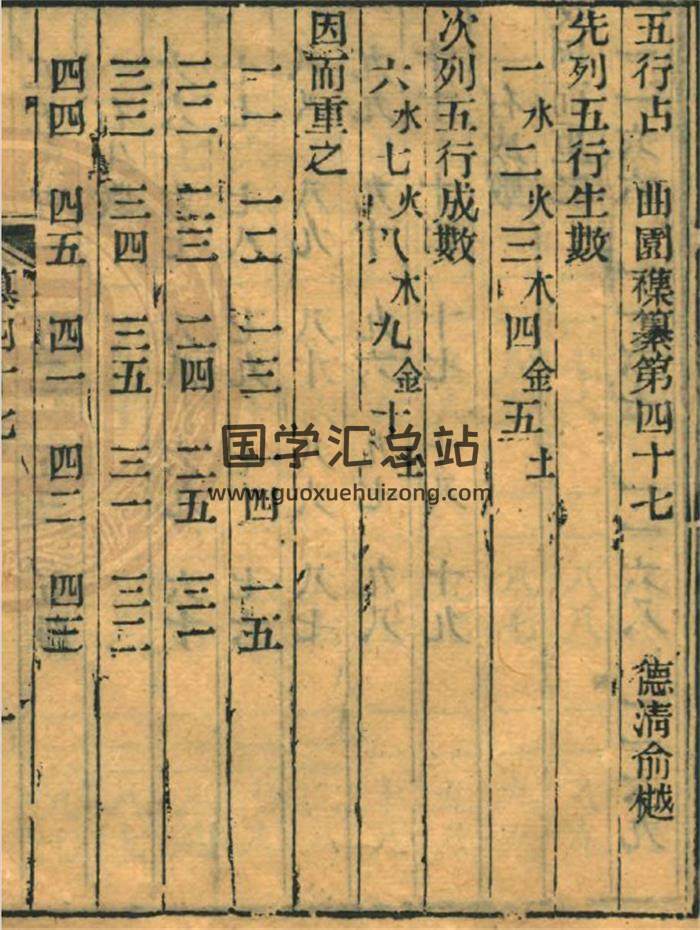 五行占　曲園襍纂第四十七　德清俞樾
先列五行生數
一水二火三木四金五土
次列五行成數
六水七火八木九金十土
因而重之
一一　一二　一三　一四　一五
二二　二三　二四　二五　二一
三三　三四　三五　三一　三二
四四　四五　四一　四二　四三
纂四十七
国学汇总站
www.guoxuehuizong.com